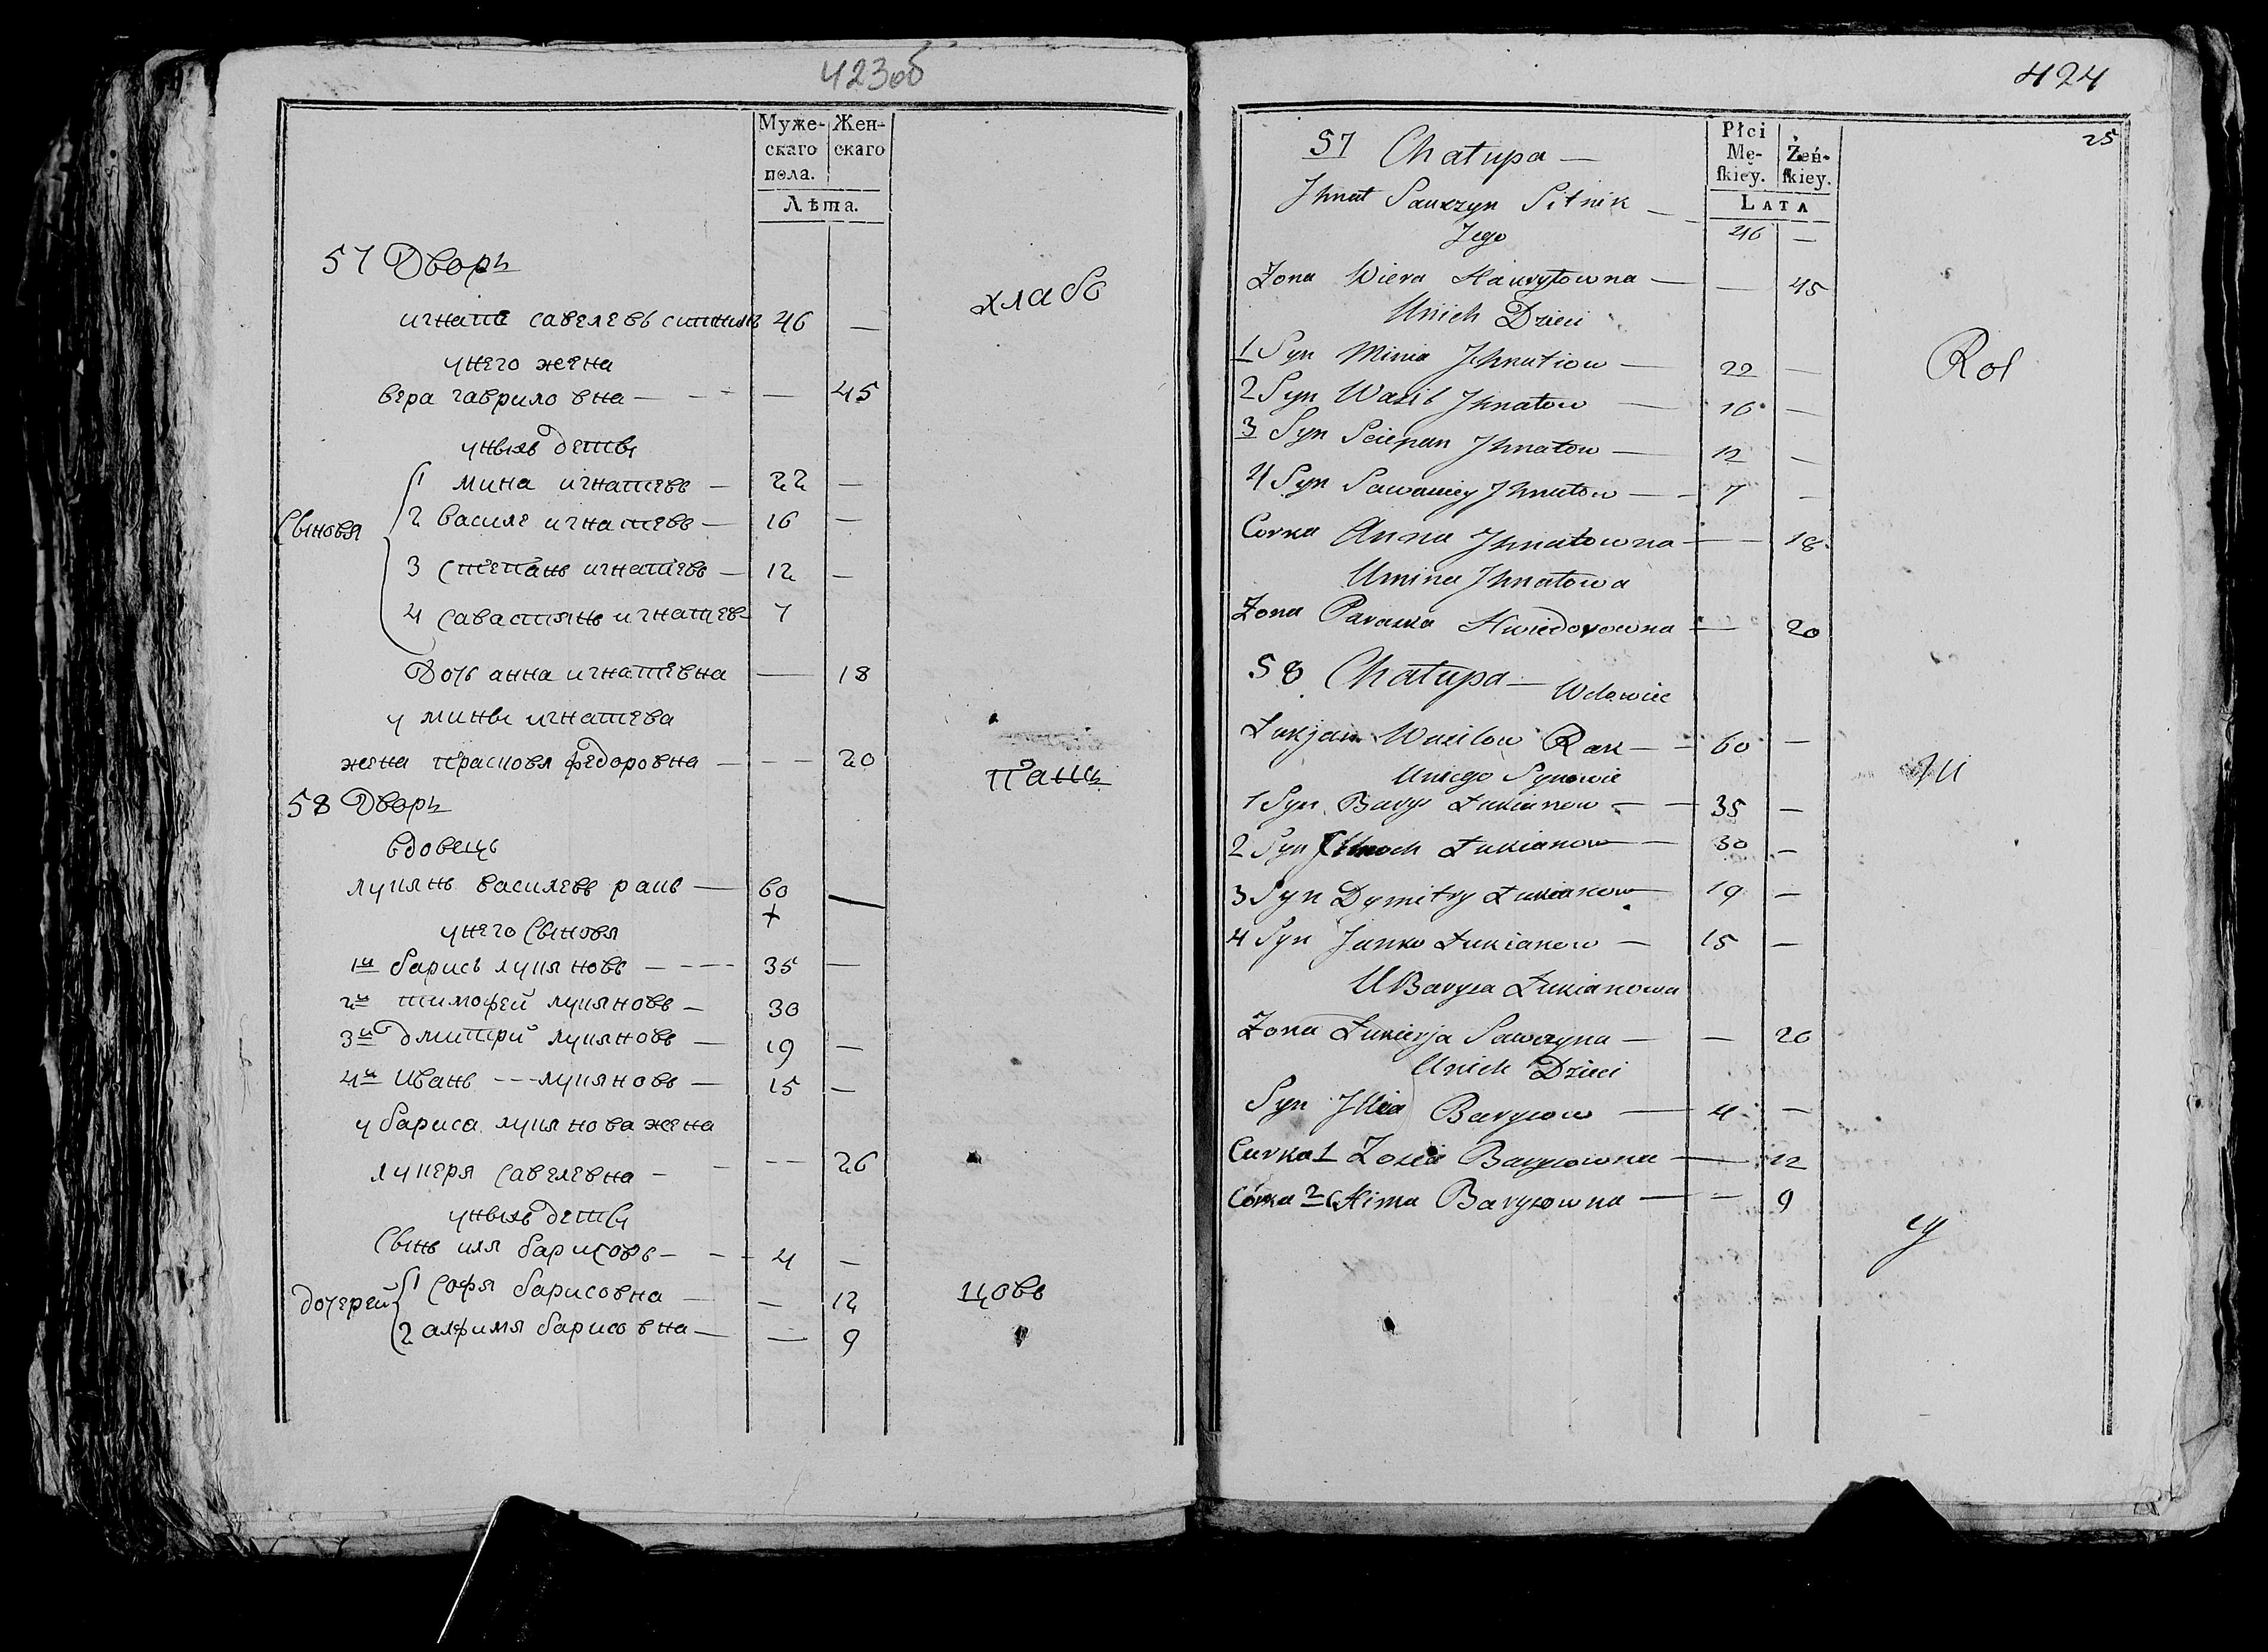 423об
Муже- Жен-
скаго скаго
пола.
Лѣта.
57 Дворъ
игнатъ савелевъ ситникъ 46 —
унего жена
вера гавриловна — — — — 45
уныхъ дети
Сыновя
1 мина игнатевъ — 22 —
2 василе игнатевъ — 16 —
3 степанъ игнатевъ — 12 —
4 савастиянъ игнатев— 7
дочь анна игнатевна — 18
у мины игнатева
жена прасковя федоровна — — — 20
58 Дворъ
вдовецъ
лукянъ василевъ ракъ — 60 —
+
унего сыновя
1й барисъ лукяновъ — — — — 35 —
2й тимофей лукяновъ — 30
3й дмитрий лукяновъ — 19 —
4й иванъ — — — лукяновъ — 15 —
у бариса лукянова жена
лукеря савелевна — — — — 26
уныхъ дети
сынъ иля барисовъ — — — 4 —
дочерей
1 софя барисовна — — 12
2 алфимя барисовна — — 9
хлабо
паш
цовъ
424
25
Płci
Mę- Żeń-
skiey. skiey.
LATA
57 Chatupa —
Ihnat Sawczyn Sitnik —
Jego 46 —
Zona Wiera Hawryłowna — — 45
Unich Dzieci
1 Syn Mina Ihnatiow — 22 —
2 Syn Wasil Ihnatow — 16 —
3 Syn Sciepan Ihnatow — 12 —
4 Syn Ihnatow — — 7 —
Corka Anna Ihnatowna — — 18
Umina Ihnatowa
Zona Paraska Hwiedorowna — 20
58 Chatupa — Wdowiec
Łukjan Wasilow Rak — — 60 —
Uniego Synowie
1 Syn Barys Łukianow — — 35 —
2 Syn Łukianow — 30 —
3 Syn Dymitry Łukianow — 19 —
4 Syn Janko Łukianow — 15 —
U Barysa Łukianowa
Zona Łukierja Sawczyna — — 26
Unich Dzieci
Syn Illia Barysow — 4 —
Curka 1 Zosia Barysowna — 12
Córka 2 Barysowna — — 9
Rol
ni
cy